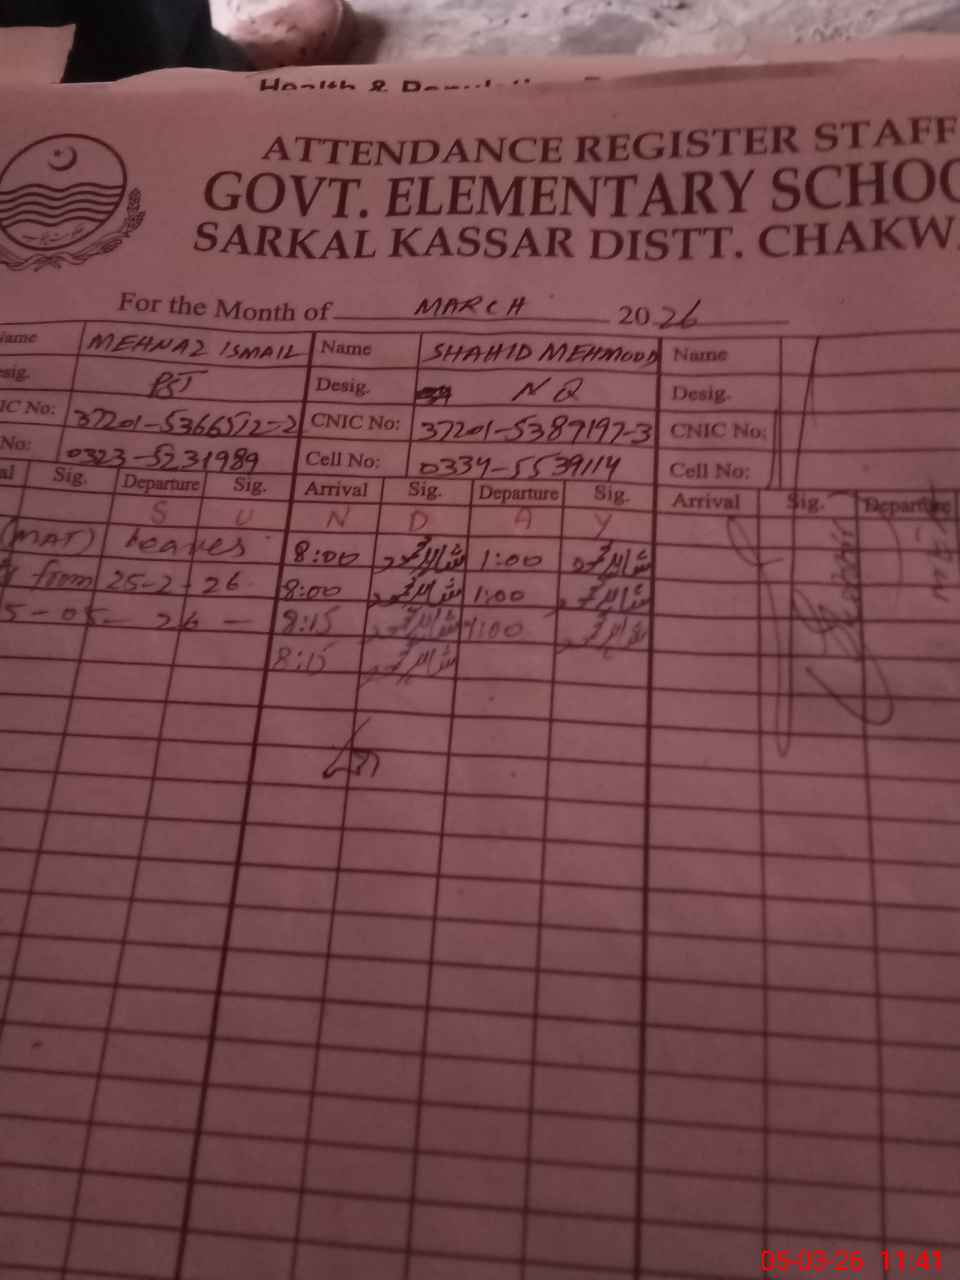 Health &
ATTENDANCE REGISTER STAFF
GOVT. ELEMENTARY SCHOO
SARKAL KASSAR DISTT. CHAKW
For the Month of MARCH 2026
Name MEHNAZ ISMAIL Name SHAHID MEHMOOD Name
Desig. PST Desig. N Q Desig.
IC No: 37201-5366572-2 CNIC No: 37201-5387197-3 CNIC No:
No: 0323-5231989 Cell No: 0334-5539114 Cell No:
al Sig. Departure Sig. Arrival Sig. Departure Sig. Arrival Sig. Departure
S U N D A Y
(MAT) Leaves 8:00 شاہد محمود 1:00 شاہد محمود
from 25-2-26 8:00 شاہد محمود 1:00 شاہد محمود
5-05-26 - 8:15 شاہد محمود 1:00 شاہد محمود
8:15 شاہد محمود
05-03-26 11:41